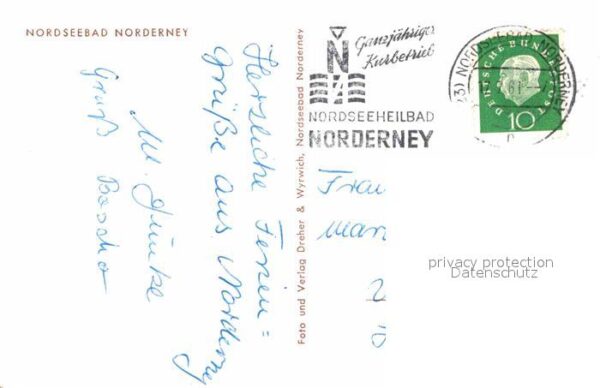 NORDSEEBAD NORDERNEY
Herzliche Ferien=
grüße aus Norderney
Gruß
Foto und Verlag Dreher & Wyrwich, Nordseebad Norderney
Ganzjähriger
Kurbetrieb
N
NORDSEEHEILBAD
NORDERNEY
NORDSEEBAD NORDERNEY
61
DEUTSCHE BUNDESPOST
10
Frau
Mar
2
privacy protection
Datenschutz